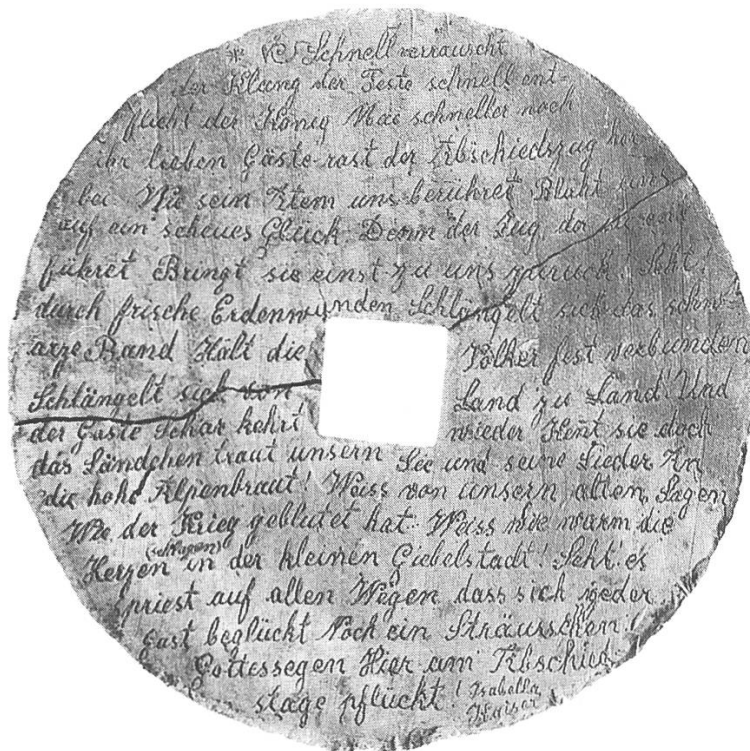 * Schnell verrauscht
der Klang der Feste schnell ent-
flieht der König Mai schneller noch
ihr lieben Gäste rast der Abschiedszug her
bei Wie sein Atem uns berühret Blüht uns
auf ein scheues Glück. Denn der Zug der sie
führet Bringt sie einst zu uns zurück. Seht!
durch frische Erdenwunden Schlängelt sich das schw-
arze Band Hält die Völker fest verbunden
Schlängelt sich von Land zu Land! Und
der Gäste Schar kehrt wieder Kennt sie doch
das Ländchen traut unsern See und seine Lieder An
die hohe Alpenbraut! Weiss von unsern alten Sagen
Wie der Krieg geblutet hat. Weiss wie warm die
Herzen (schlagen) in der kleinen Giebelstadt! Seht! es
spriest auf allen Wegen dass sich jeder
Gast beglückt Noch ein Sträusschen
Gottessegen Hier am Abschied
stage pflückt! Isabella
Kaiser